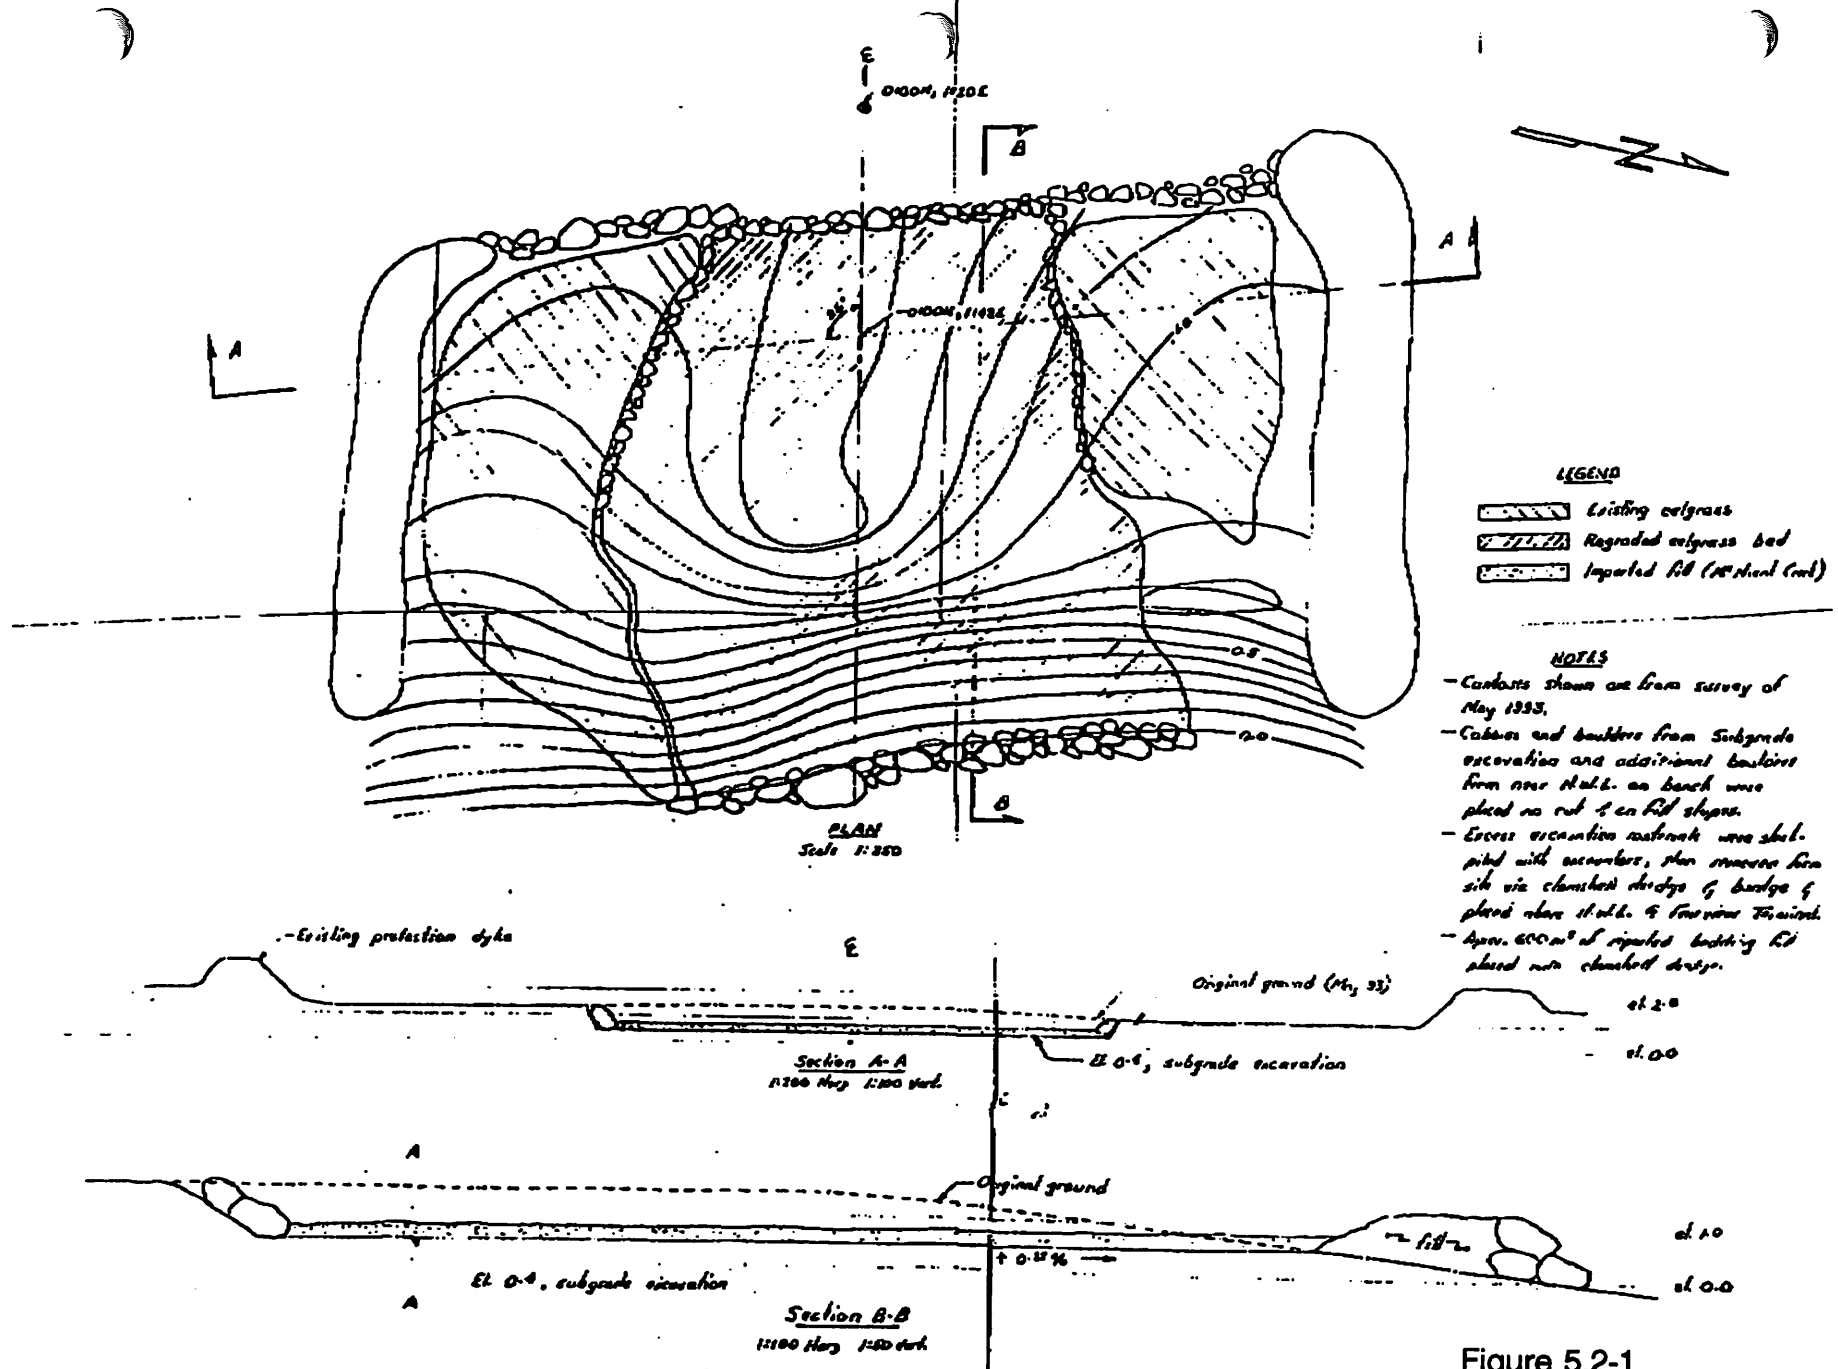 ℄
B
N
A
A
1.0
LEGEND
Existing eelgrass
Regraded eelgrass bed
Imported fill
0.5
NOTES
- Contours shown are from survey of
May 1993.
- Cobbles and boulders from Subgrade
excavation and additional boulders
from near H.W.L. on beach were
placed on cut & on fill slopes.
- Excess excavation materials were
piled with excavators, then removed from
site via clamshell dredge & barge &
placed above H.W.L.
- Aprx. 600 m³ of imported bedding fill
placed with clamshell dredge.
B
PLAN
Scale 1:250
Existing protection dyke
℄
Original ground (May 93)
el. 2.0
Section A-A
1:200 Horz 1:100 Vert.
El. 0.4, subgrade excavation
el. 0.0
A
Original ground
fill
el. 1.0
+ 0.25%
El. 0.4, subgrade excavation
el. 0.0
A
Section B-B
1:100 Horz 1:50 Vert.
Figure 5.2-1